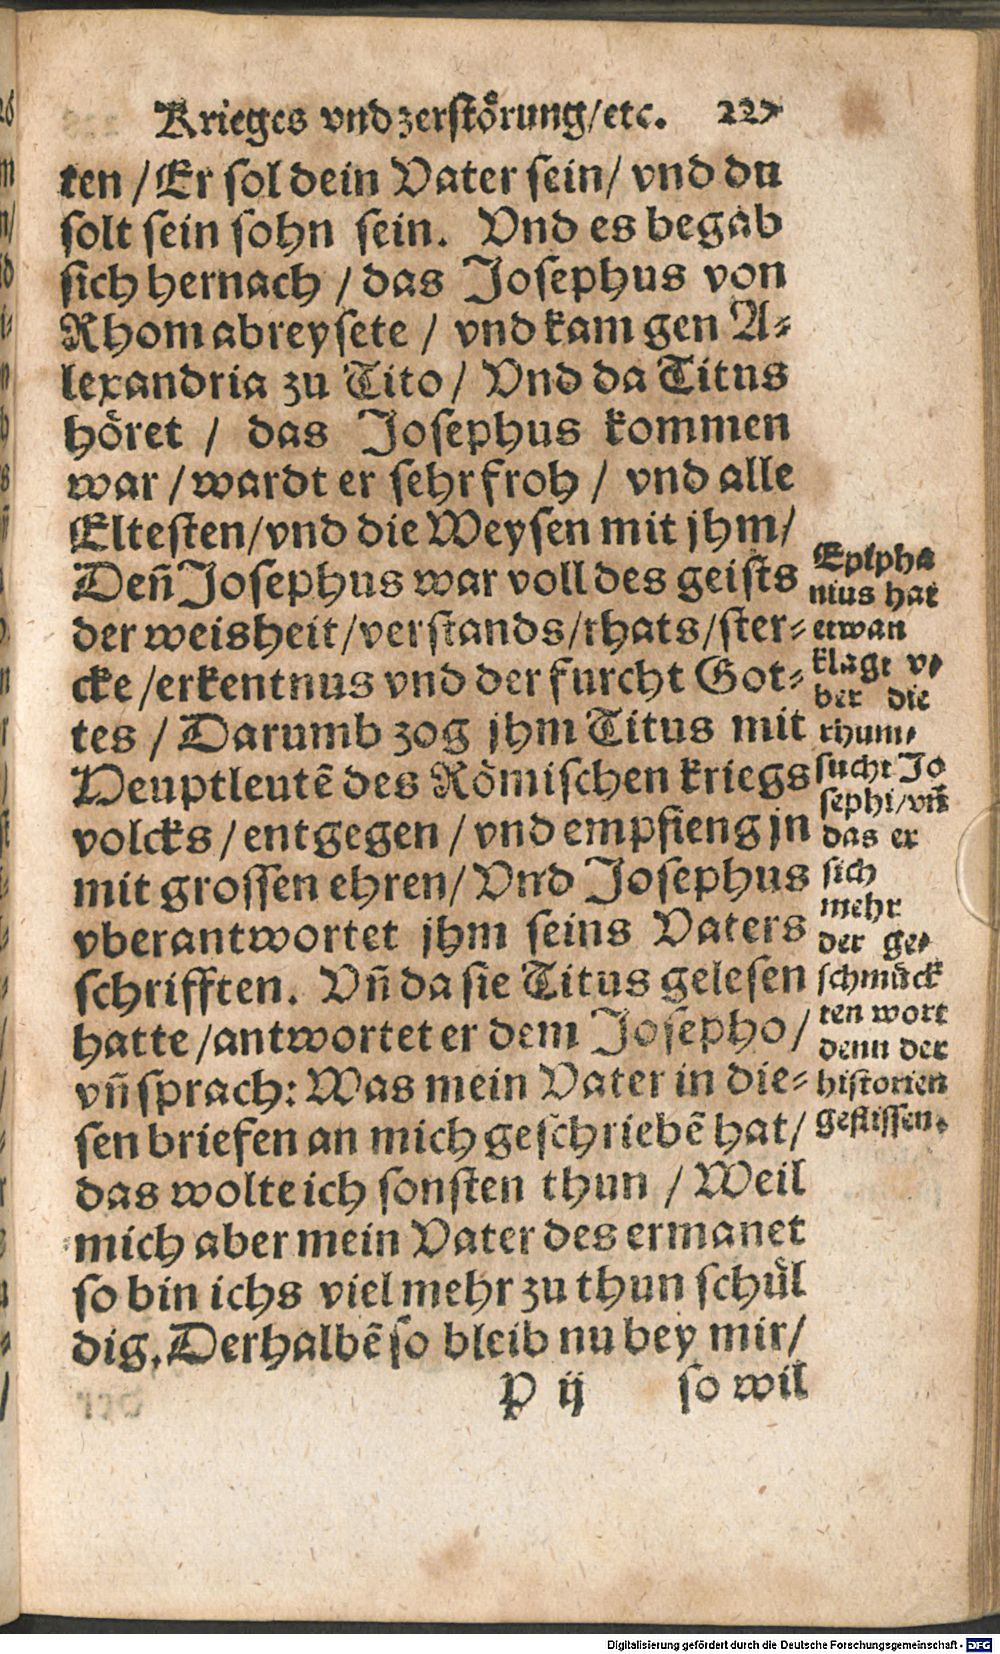 Krieges vnd zerstörung/etc. 227
ten / Er sol dein Vater sein/ vnd du
solt sein sohn sein. Vnd es begab
sich hernach / das Josephus von
Rhom abreysete / vnd kam gen A-
lexandria zu Tito / Vnd da Titus
höret / das Josephus kommen
war / wardt er sehr froh / vnd alle
Eltesten/vnd die Weysen mit jhm/
Deñ Josephus war voll des geists
der weisheit/verstands/rhats/ster-
cke /erkentnus vnd der furcht Got-
tes / Darumb zog jhm Titus mit
Heuptleutẽ des Römischen kriegs
volcks / entgegen / vnd empfieng jn
mit grossen ehren/ Vnd Josephus
vberantwortet jhm seins Vaters
schrifften. Vñ da sie Titus gelesen
hatte /antwortet er dem Josepho/
vñ sprach: Was mein Vater in die-
sen briefen an mich geschriebẽ hat/
das wolte ich sonsten thun / Weil
mich aber mein Vater des ermanet
so bin ichs viel mehr zu thun schül
dig. Derhalbẽ so bleib nu bey mir/
P ij so wil
Epipha
nius hat
etwan
klagt v-
ber die
rhum-
sucht Jo
sephi/vñ
das er
sich
mehr
der ge-
schmück
ten wort
denn der
historien
geflissen.
Digitalisierung gefördert durch die Deutsche Forschungsgemeinschaft - DFG